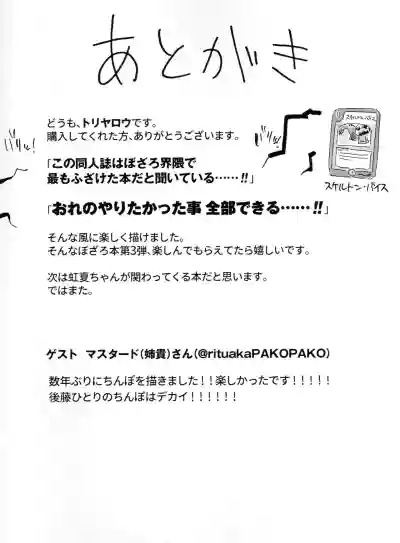 あとがき
どうも、トリヤロウです。
購入してくれた方、ありがとうございます。
「この同人誌はぼざろ界隈で
最もふざけた本だと聞いている……!!」
「おれのやりたかった事 全部できる……!!」
そんな風に楽しく描けました。
そんなぼざろ本第3弾、楽しんでもらえてたら嬉しいです。
次は虹夏ちゃんが関わってくる本だと思います。
ではまた。
スケルトン・バイス
ゲスト マスタード(姉貴)さん(@rituakaPAKOPAKO)
数年ぶりにちんぽを描きました!!楽しかったです!!!!!
後藤ひとりのちんぽはデカイ!!!!!!